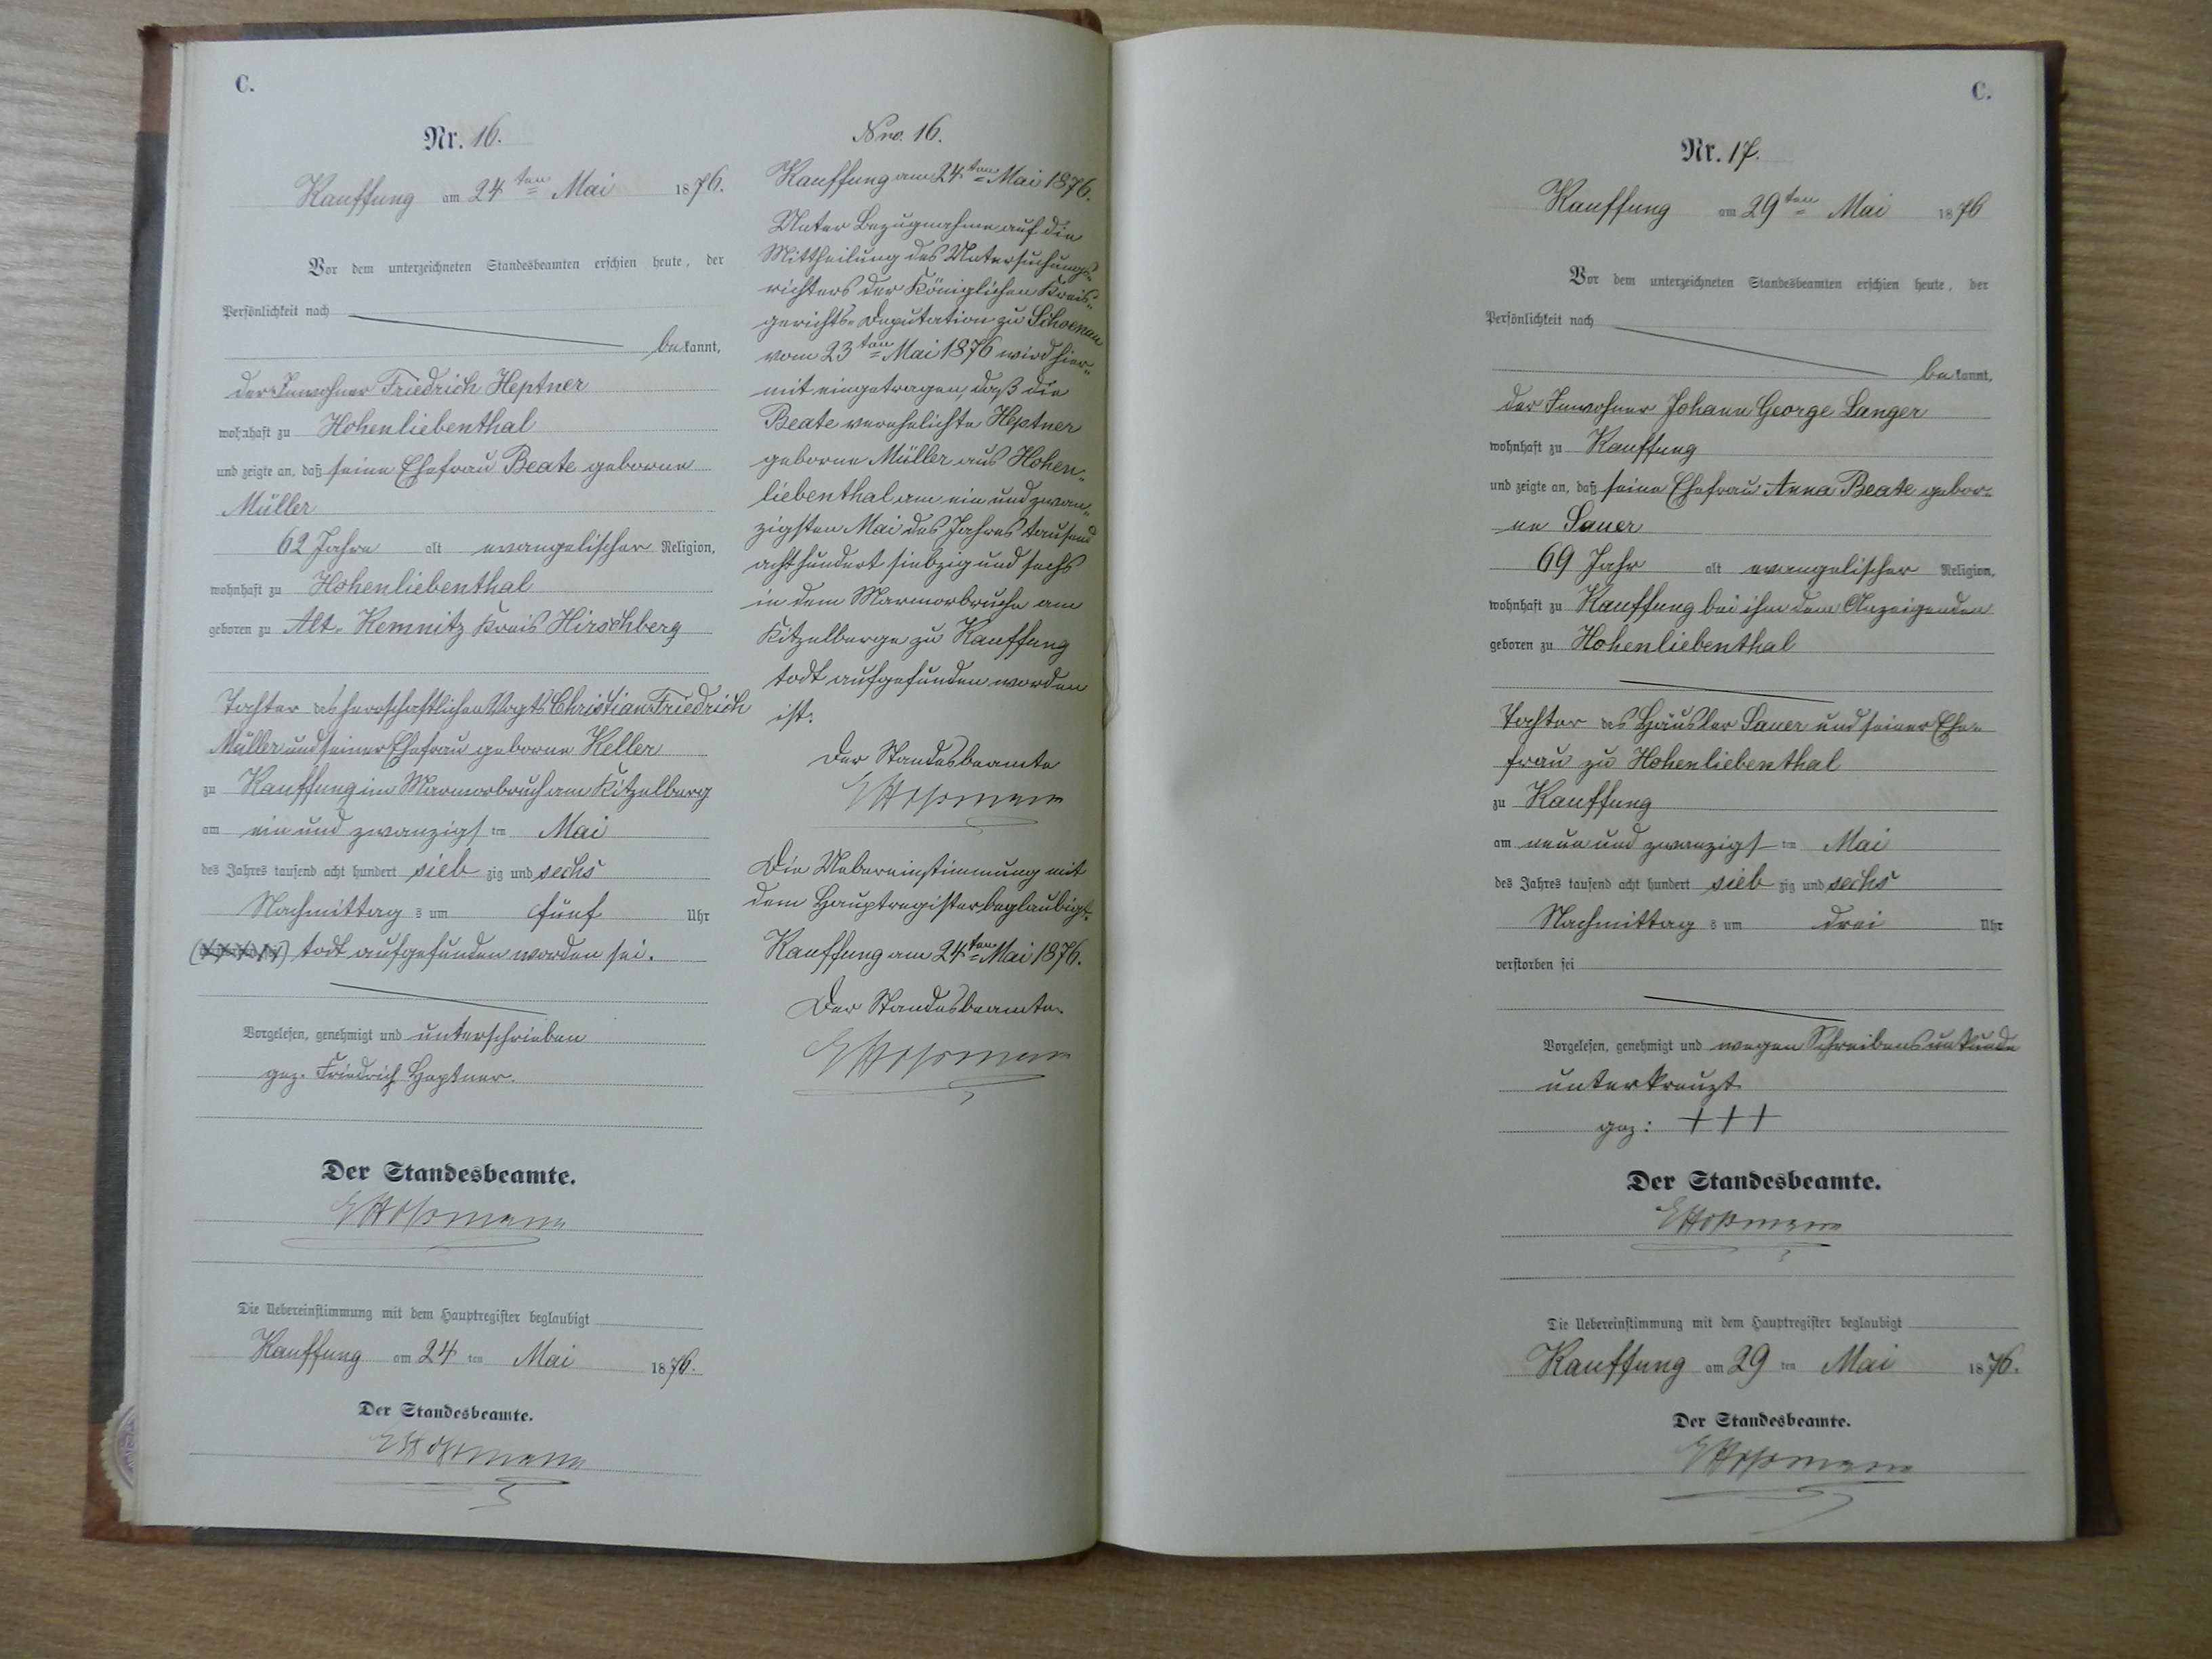 C.
Nr. 16.
Kauffung am 24ten Mai 1876.
Vor dem unterzeichneten Standesbeamten erschien heute, der
Persönlichkeit nach
bekannt,
der Inwohner Friedrich Heptner
wohnhaft zu Hohenliebenthal
und zeigte an, daß seine Ehefrau Beate geborne
Müller
62 Jahre alt evangelischer Religion,
wohnhaft zu Hohenliebenthal
geboren zu Alt-Kemnitz Kreis Hirschberg
Tochter des herrschaftlichen Vogts Christian Friedrich
Müller und seiner Ehefrau geborne Keller
zu Kauffung im Marmorbruch am Kitzelberg
am ein und zwanzigsten Mai
des Jahres tausend acht hundert siebzig und sechs
Nachmittags um fünf Uhr
todt aufgefunden worden sei.
Vorgelesen, genehmigt und unterschrieben
gez. Friedrich Heptner.
Der Standesbeamte.
Die Uebereinstimmung mit dem Hauptregister beglaubigt
Kauffung am 24ten Mai 1876.
Der Standesbeamte.
Nro. 16.
Kauffung am 24ten Mai 1876.
Unter Bezugnahme auf die
Mittheilung des Untersuchungs-
richters der Königlichen Kreis-
gerichts-Deputation zu Schoenau
vom 23ten Mai 1876 wird hier-
mit eingetragen, daß die
Beate verehelichte Heptner
geborne Müller aus Hohen-
liebenthal am ein und zwan-
zigsten Mai des Jahres tausend
acht hundert siebzig und sechs
in dem Marmorbruche am
Kitzelberge zu Kauffung
todt aufgefunden worden
ist.
Der Standesbeamte
Die Uebereinstimmung mit
dem Hauptregister beglaubigt.
Kauffung am 24ten Mai 1876.
Der Standesbeamte.
C.
Nr. 17.
Kauffung am 29ten Mai 1876
Vor dem unterzeichneten Standesbeamten erschien heute, der
Persönlichkeit nach
bekannt,
der Inwohner Johann George Langer
wohnhaft zu Kauffung
und zeigte an, daß seine Ehefrau Anna Beate gebor-
ne Sauer
69 Jahr alt evangelischer Religion,
wohnhaft zu Kauffung bei ihm dem Anzeigenden
geboren zu Hohenliebenthal
Tochter des Häusler Sauer und seiner Ehe-
frau zu Hohenliebenthal
zu Kauffung
am neun und zwanzigsten Mai
des Jahres tausend acht hundert siebzig und sechs
Nachmittags um drei Uhr
verstorben sei
Vorgelesen, genehmigt und wegen Schreibensunkunde
unterkreuzt
gez: +++
Der Standesbeamte.
Die Uebereinstimmung mit dem Hauptregister beglaubigt
Kauffung am 29ten Mai 1876.
Der Standesbeamte.